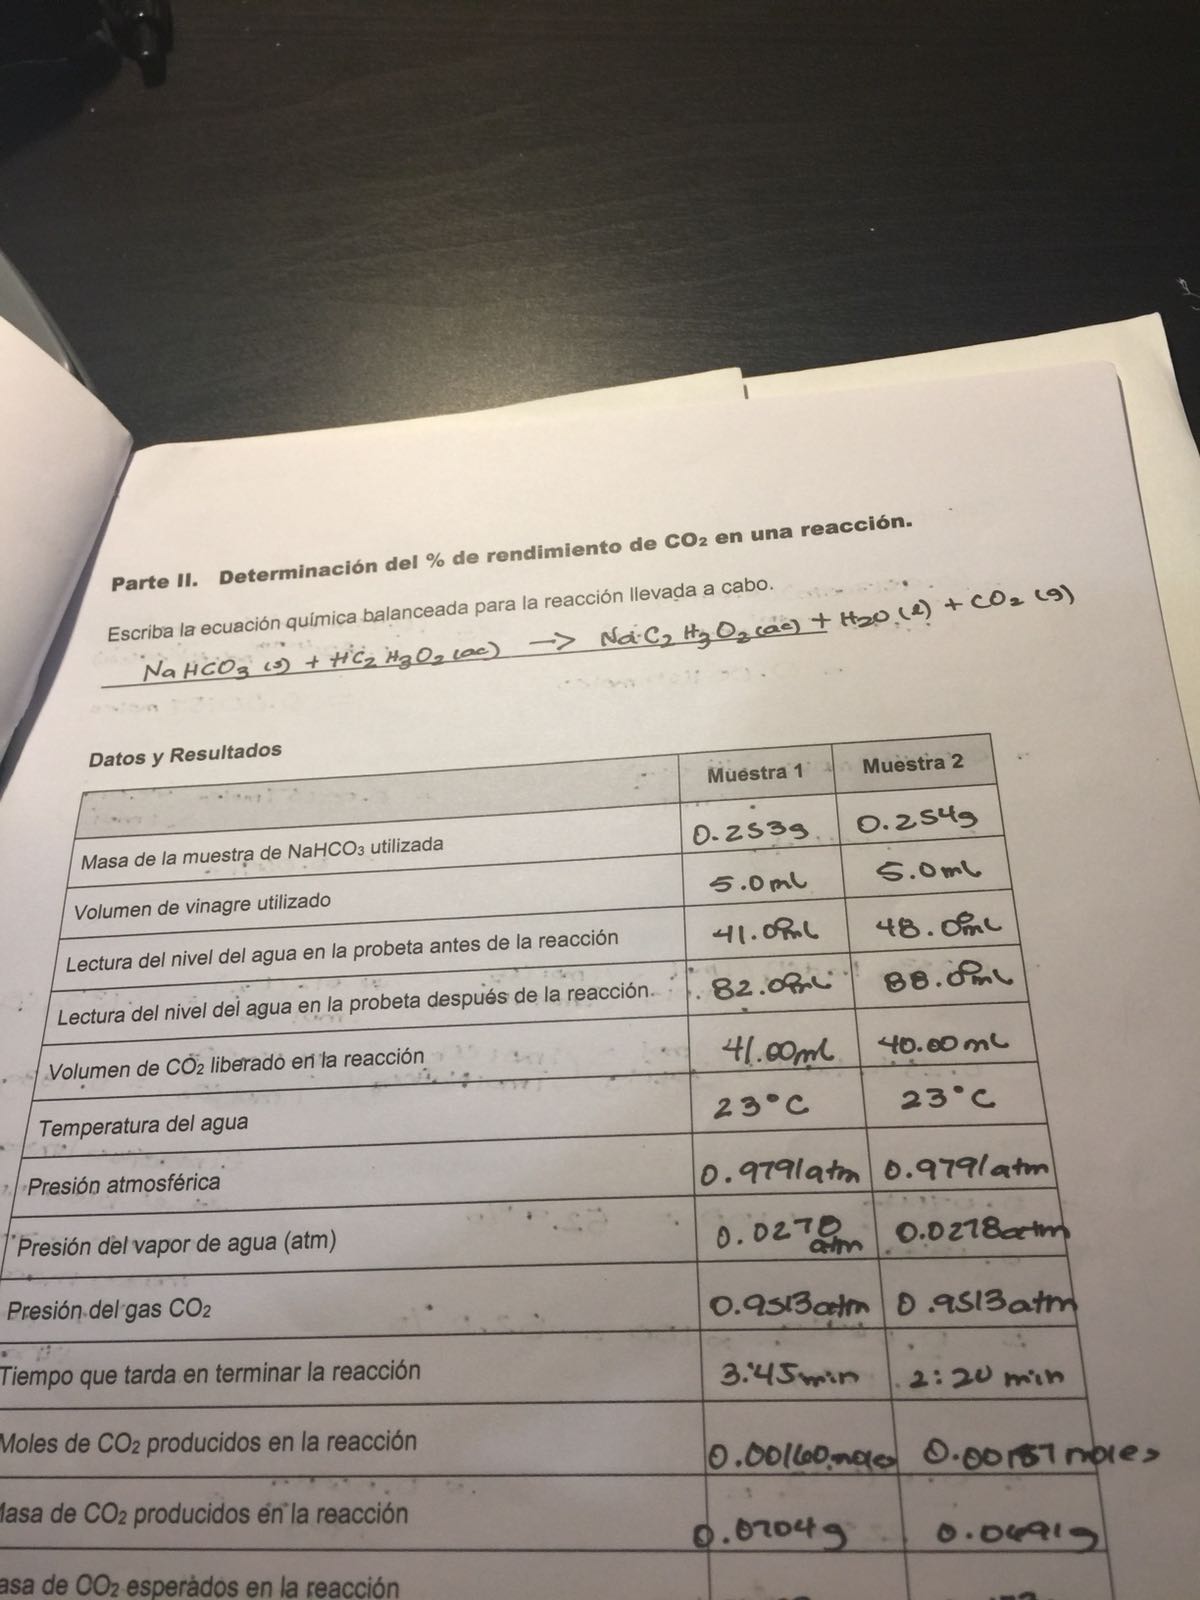 Parte II. Determinación del % de rendimiento de CO₂ en una reacción.
Escriba la ecuación química balanceada para la reacción llevada a cabo.
NaHCO₃ (s) + HC₂H₃O₂ (ac) → NaC₂H₃O₂ (ac) + H₂O (l) + CO₂ (g)
Datos y Resultados
Muestra 1 Muestra 2
Masa de la muestra de NaHCO₃ utilizada 0.253g 0.254g
Volumen de vinagre utilizado 5.0ml 5.0ml
Lectura del nivel del agua en la probeta antes de la reacción 41.00ml 48.00ml
Lectura del nivel del agua en la probeta después de la reacción. 82.00ml 88.00ml
Volumen de CO₂ liberado en la reacción 41.00ml 40.00ml
Temperatura del agua 23°C 23°C
Presión atmosférica 0.9791atm 0.9791atm
Presión del vapor de agua (atm) 0.0278 atm 0.0278atm
Presión del gas CO₂ 0.9513atm 0.9513atm
Tiempo que tarda en terminar la reacción 3:45min 2:20 min
Moles de CO₂ producidos en la reacción 0.00160moles 0.00157moles
Masa de CO₂ producidos en la reacción 0.0704g 0.0691g
asa de CO₂ esperados en la reacción